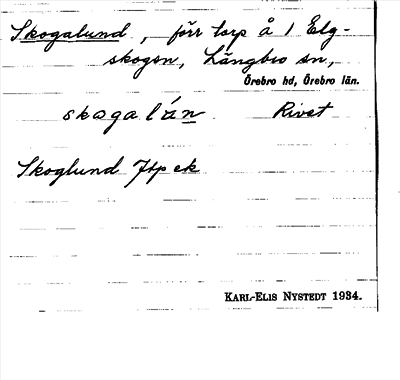 Skogalund, förr torp å 1 Elg-
skogen, Längbro sn,
Örebro hd, Örebro län.
skogalán Rivet
Skoglund Jtp ek
KARL-ELIS NYSTEDT 1934.